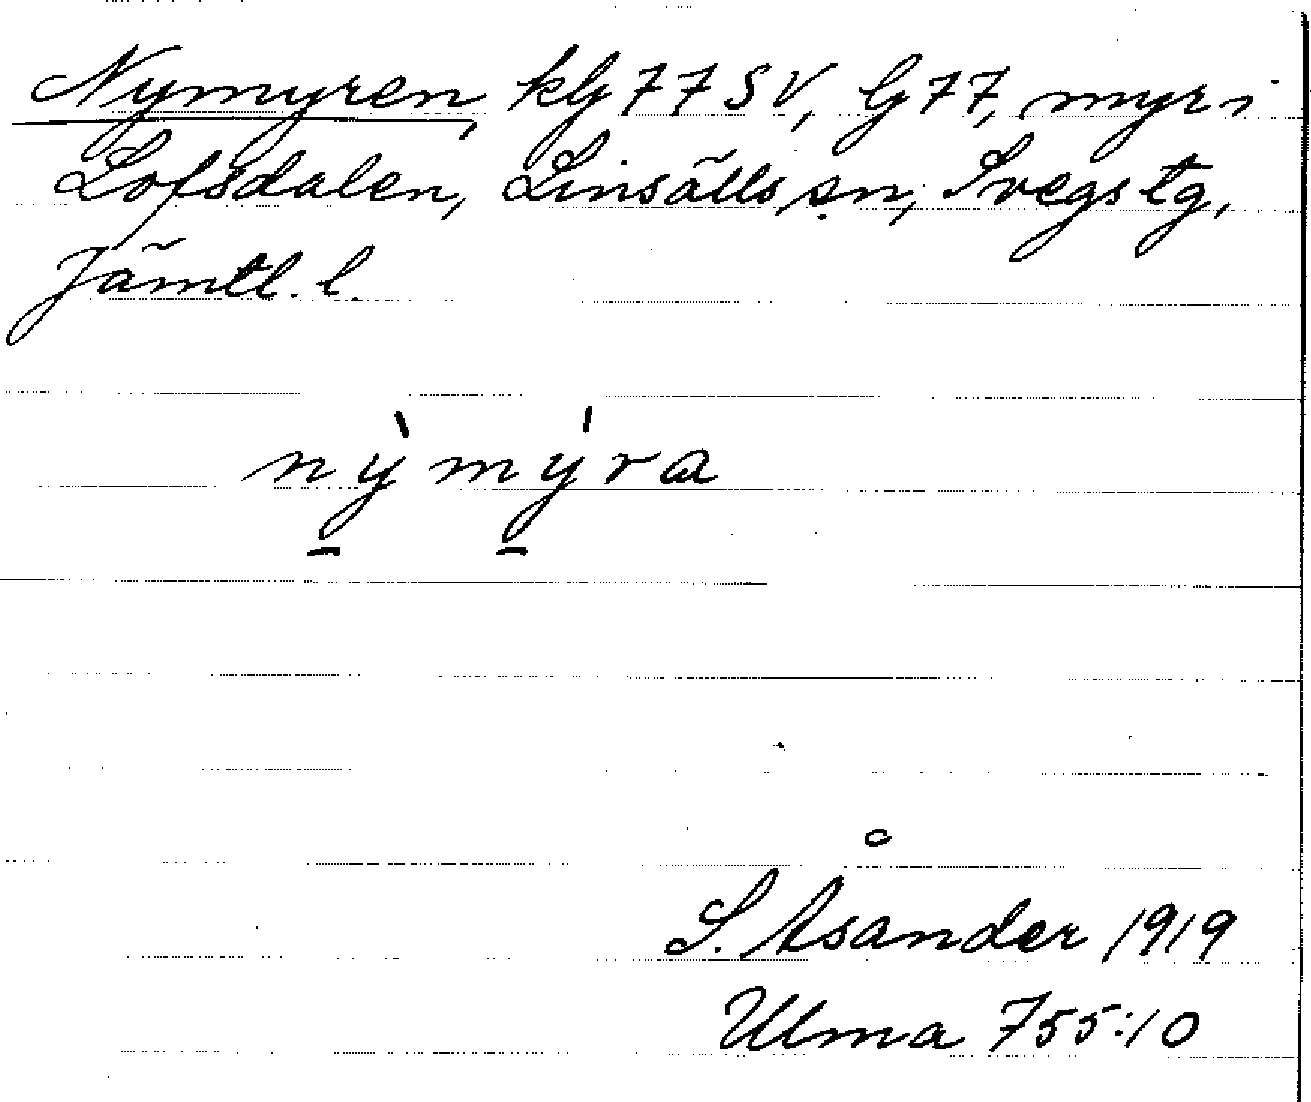 Nymyren, kbl 77 SV, G 77, myr i
Lofsdalen, Linsälls sn, Svegs tg,
Jämtl. l.
nỳ̠mý̠ra
S. Åsander 1919
Ulma 755:10